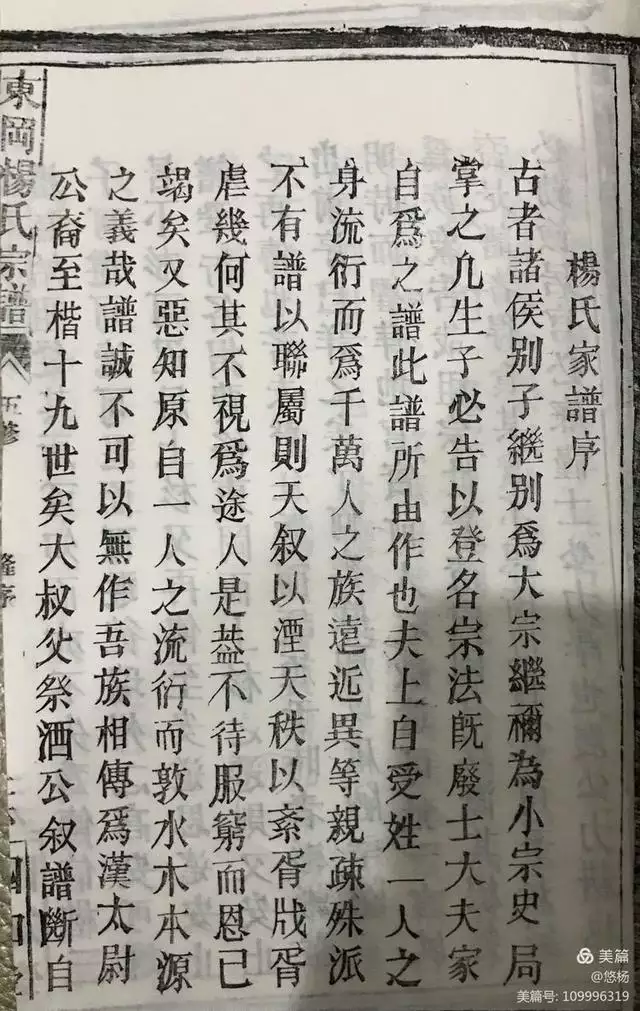 楊氏家譜序
古者諸侯別子繼別爲大宗繼禰為小宗史局
掌之凡生子必告以登名宗法旣廢士大夫家
自爲之譜此譜所由作也夫上自受姓一人之
身流衍而爲千萬人之族遠近異等親疎殊派
不有譜以聯屬則天叙以湮天秩以紊胥戕胥
虐幾何其不視爲途人是葢不待服窮而恩已
竭矣又惡知原自一人之流衍而敦水木本源
之義哉譜誠不可以無作吾族相傳爲漢太尉
公裔至楷十九世矣大叔父祭酒公叙譜斷自
東岡楊氏宗譜
五修
美篇
@悠杨
美篇号: 109996319